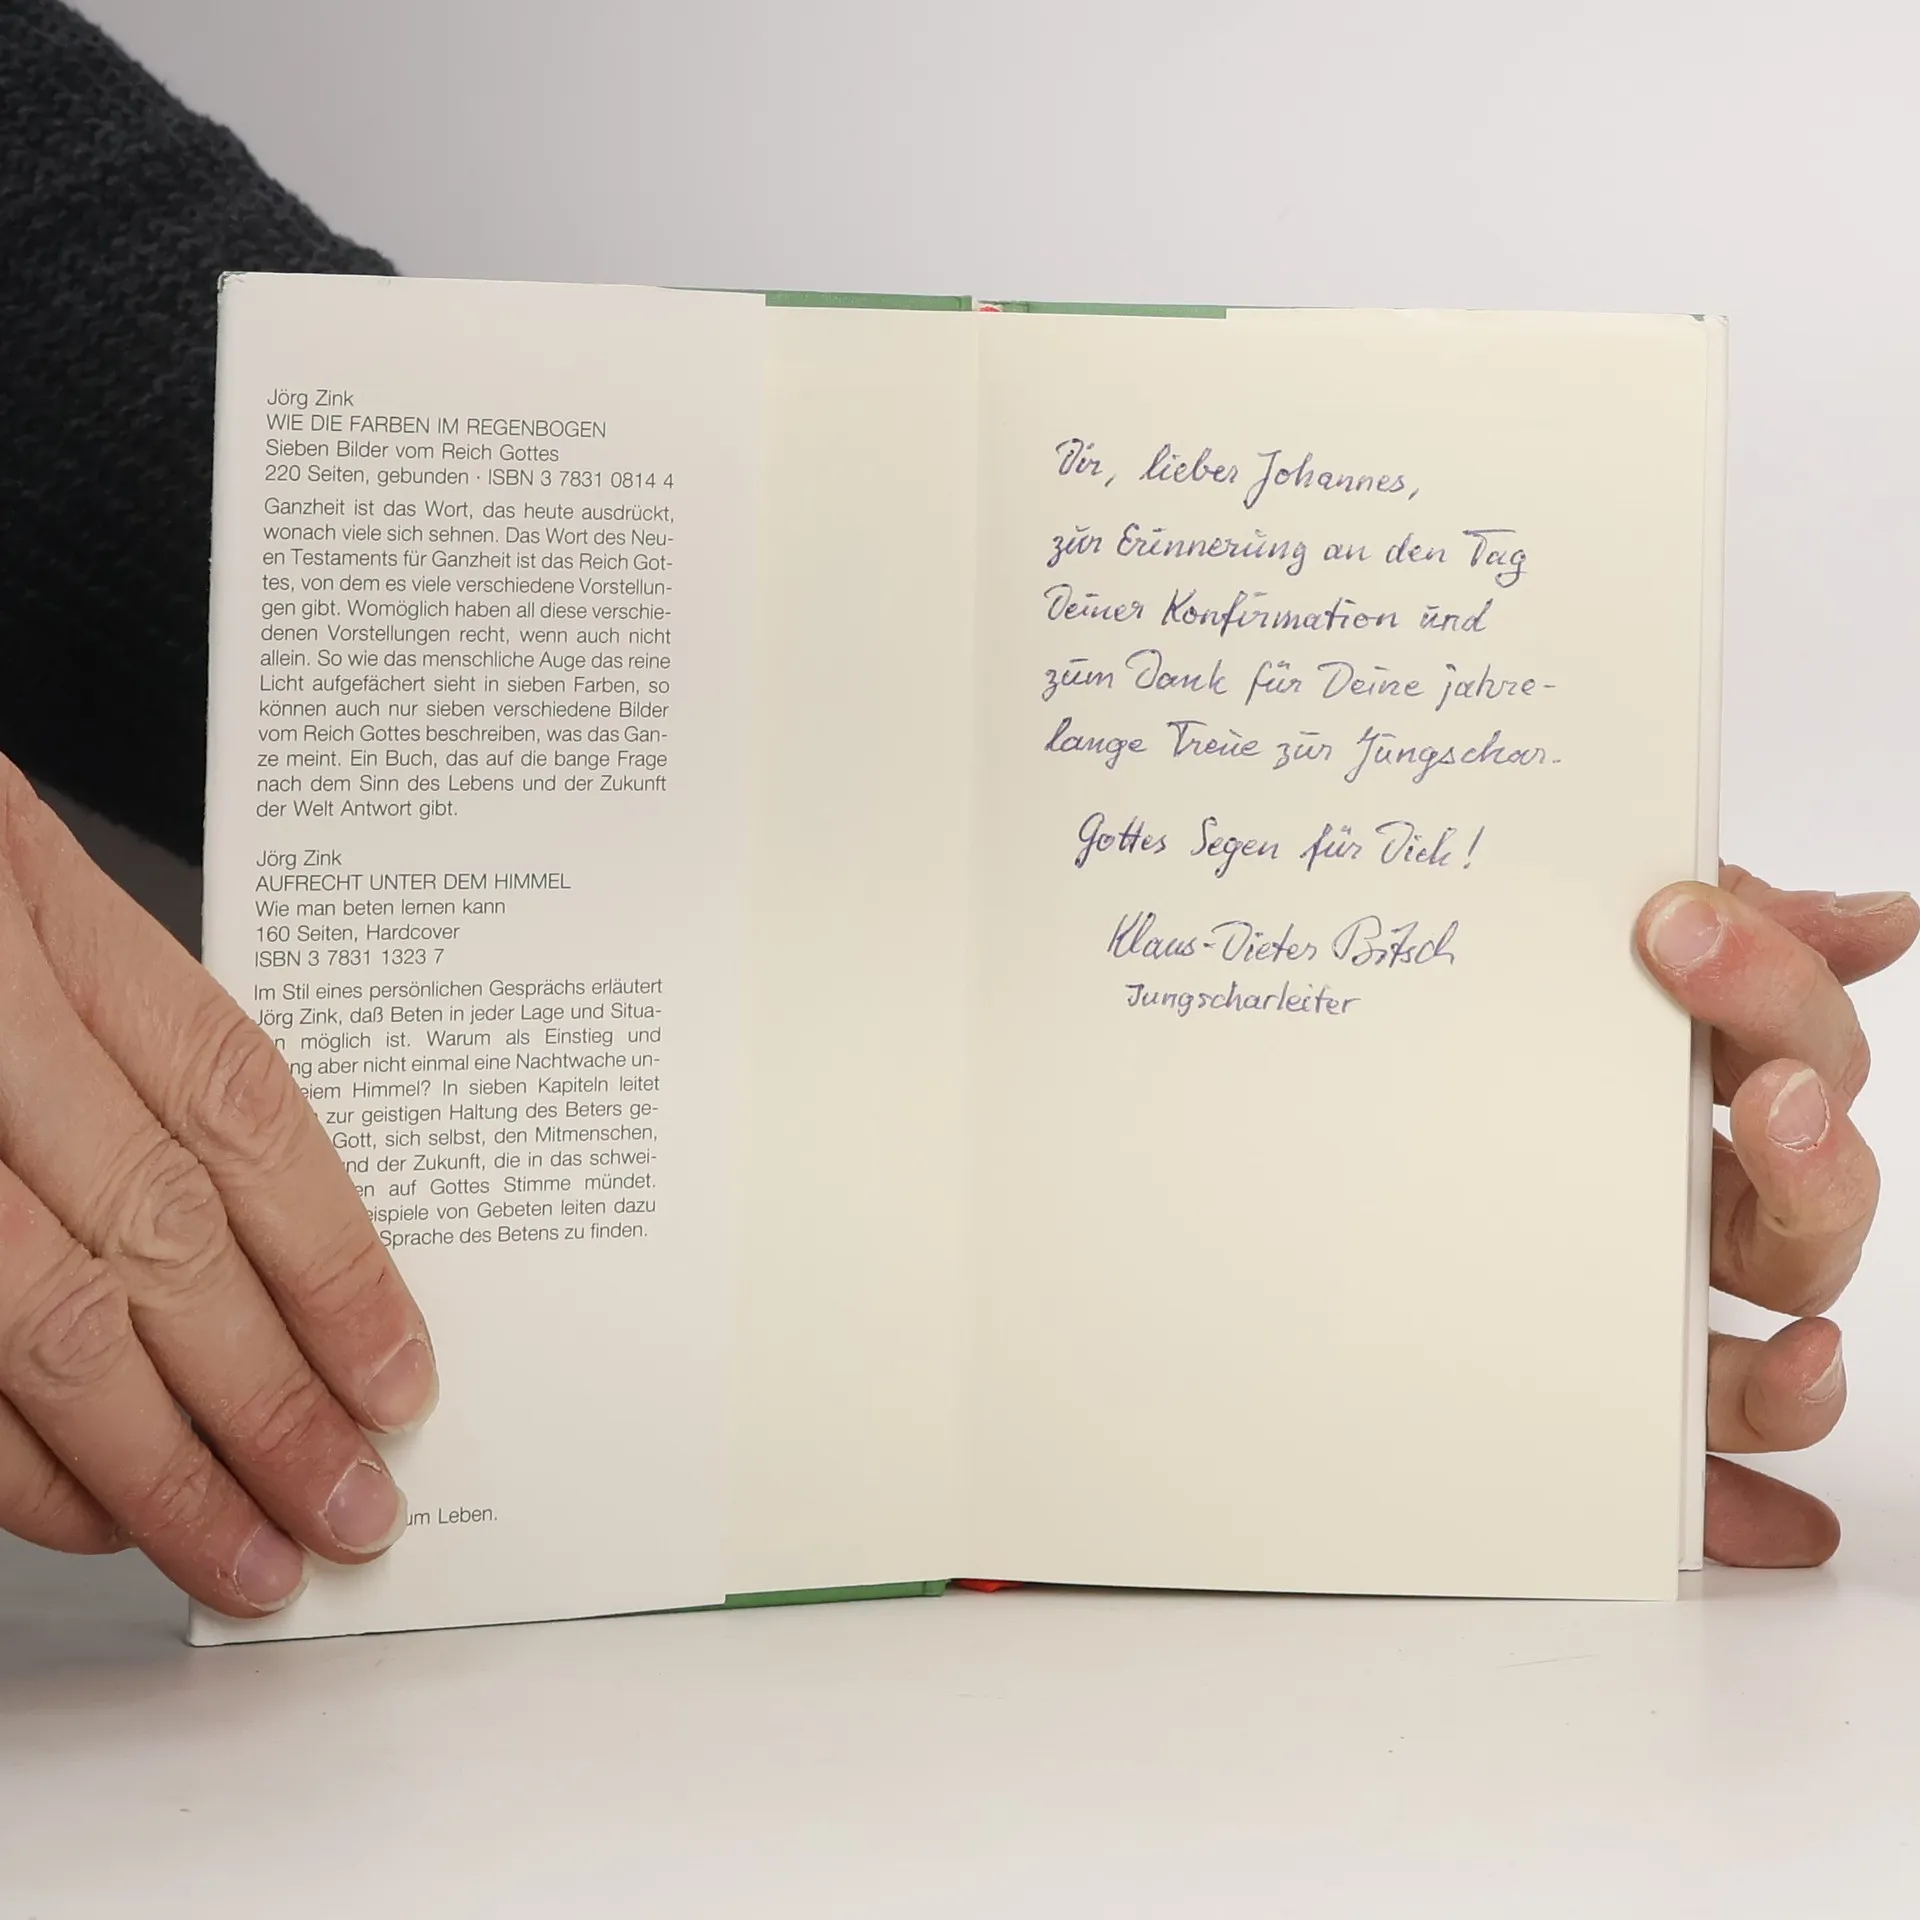 Jörg Zink
WIE DIE FARBEN IM REGENBOGEN
Sieben Bilder vom Reich Gottes
220 Seiten, gebunden · ISBN 3 7831 0814 4
Ganzheit ist das Wort, das heute ausdrückt,
wonach viele sich sehnen. Das Wort des Neu-
en Testaments für Ganzheit ist das Reich Got-
tes, von dem es viele verschiedene Vorstellun-
gen gibt. Womöglich haben all diese verschie-
denen Vorstellungen recht, wenn auch nicht
allein. So wie das menschliche Auge das reine
Licht aufgefächert sieht in sieben Farben, so
können auch nur sieben verschiedene Bilder
vom Reich Gottes beschreiben, was das Gan-
ze meint. Ein Buch, das auf die bange Frage
nach dem Sinn des Lebens und der Zukunft
der Welt Antwort gibt.
Jörg Zink
AUFRECHT UNTER DEM HIMMEL
Wie man beten lernen kann
160 Seiten, Hardcover
ISBN 3 7831 1323 7
Im Stil eines persönlichen Gesprächs erläutert
Jörg Zink, daß Beten in jeder Lage und Situa-
möglich ist. Warum als Einstieg und
aber nicht einmal eine Nachtwache un-
Himmel? In sieben Kapiteln leitet
zur geistigen Haltung des Beters ge-
Gott, sich selbst, den Mitmenschen,
der Zukunft, die in das schwei-
auf Gottes Stimme mündet.
von Gebeten leiten dazu
Sprache des Betens zu finden.
Leben.
Dir, lieber Johannes,
zur Erinnerung an den Tag
Deiner Konfirmation und
zum Dank für Deine jahre-
lange Treue zur Jungschar.
Gottes Segen für Dich!
Klaus-Dieter
Jungscharleiter